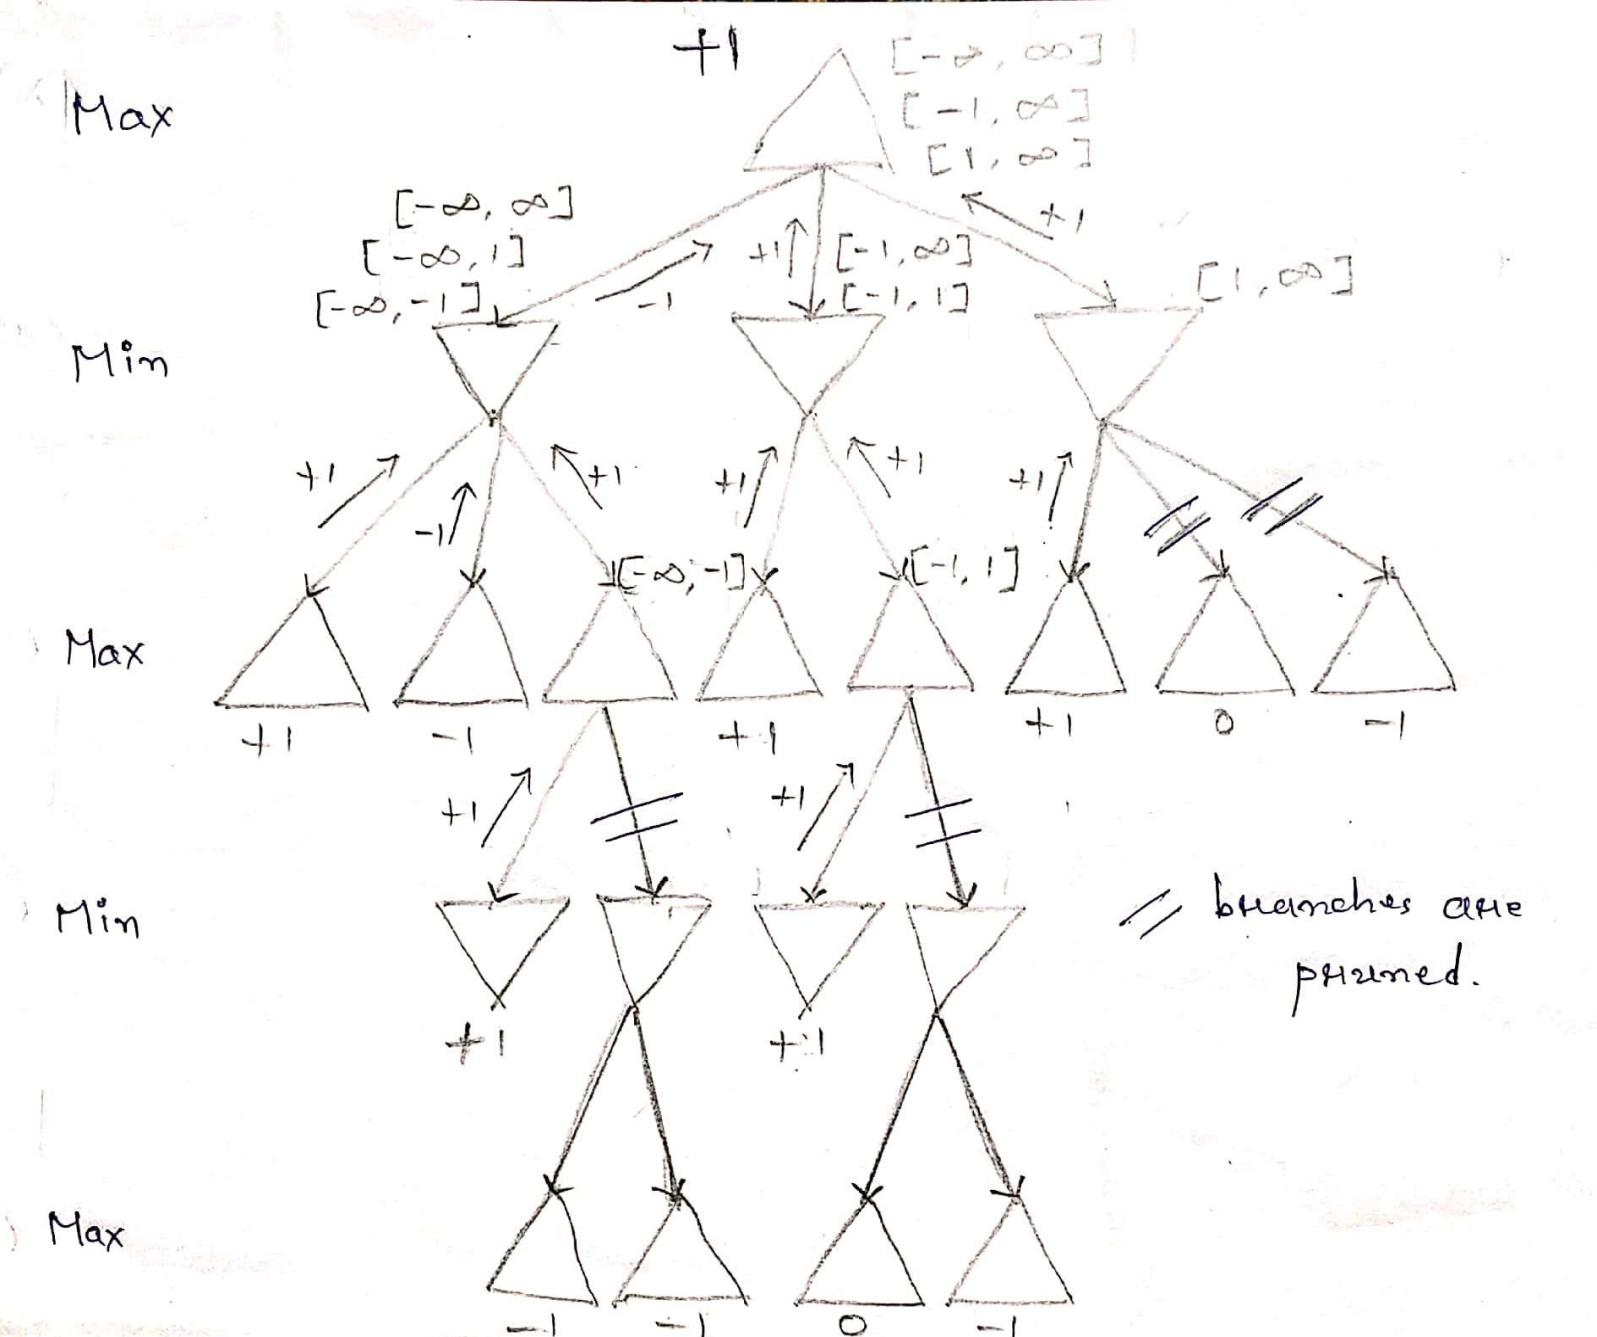 +1
[-∞, ∞]
Max
[-1, ∞]
[1, ∞]
[-∞, ∞]
+1
[-∞, 1]
+1
[-1, ∞]
[1, ∞]
[-∞, -1]
-1
[-1, 1]
Min
+1
-1
+1
+1
+1
+1
[-∞, -1]
[-1, 1]
Max
+1
-1
+1
+1
0
-1
+1
+1
Min
// branches are
pruned.
+1
+1
Max
-1
-1
0
-1